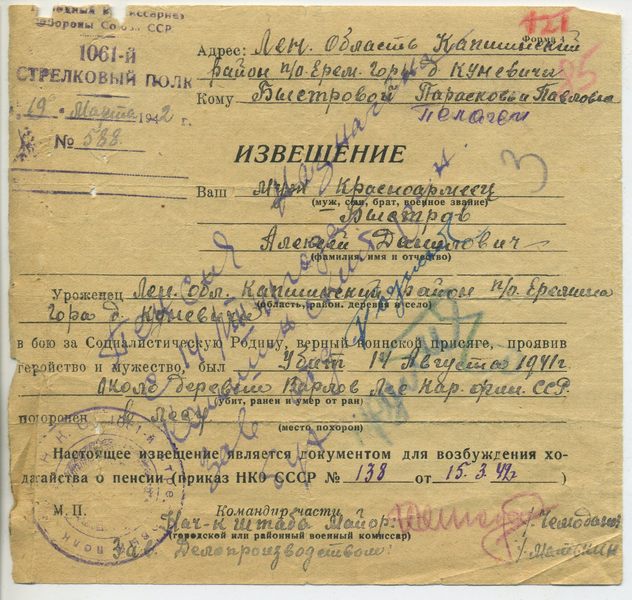 Обороны Союза ССР
1061-й
СТРЕЛКОВЫЙ ПОЛК
19 Марта 1942 г.
№ 588
121
Форма 4
85
Адрес: Лен. Область Капшинский
район п/о Ерем. Гора д Куневичи
Кому Быстровой Парасковьи Павловна
Пелагеи
ИЗВЕЩЕНИЕ
3
Ваш муж Красноармеец
(муж, сын, брат, военное звание)
Быстров
Алексей Данилович
(фамилия, имя и отчество)
Уроженец Лен. обл. Капшинский район п/о. Еремина
Гора д. Куневичи
(область, район, деревня и село)
в бою за Социалистическую Родину, верный воинской присяге, проявив
геройство и мужество, был Убит 14 Августа 1941 г.
около деревни Карлов Лес Кар. фин. ССР.
(убит, ранен и умер от ран)
похоронен в лесу
(место похорон)
Пенсия назнач
Настоящее извещение является документом для возбуждения хо-
датайства о пенсии (приказ НКО СССР № 138 от 15.3.42 г.)
М. П.
Командир части
Нач-к штаба Майор: /Чемодан
(городской или районный военный комиссар)
Зав. Делопроизводством: